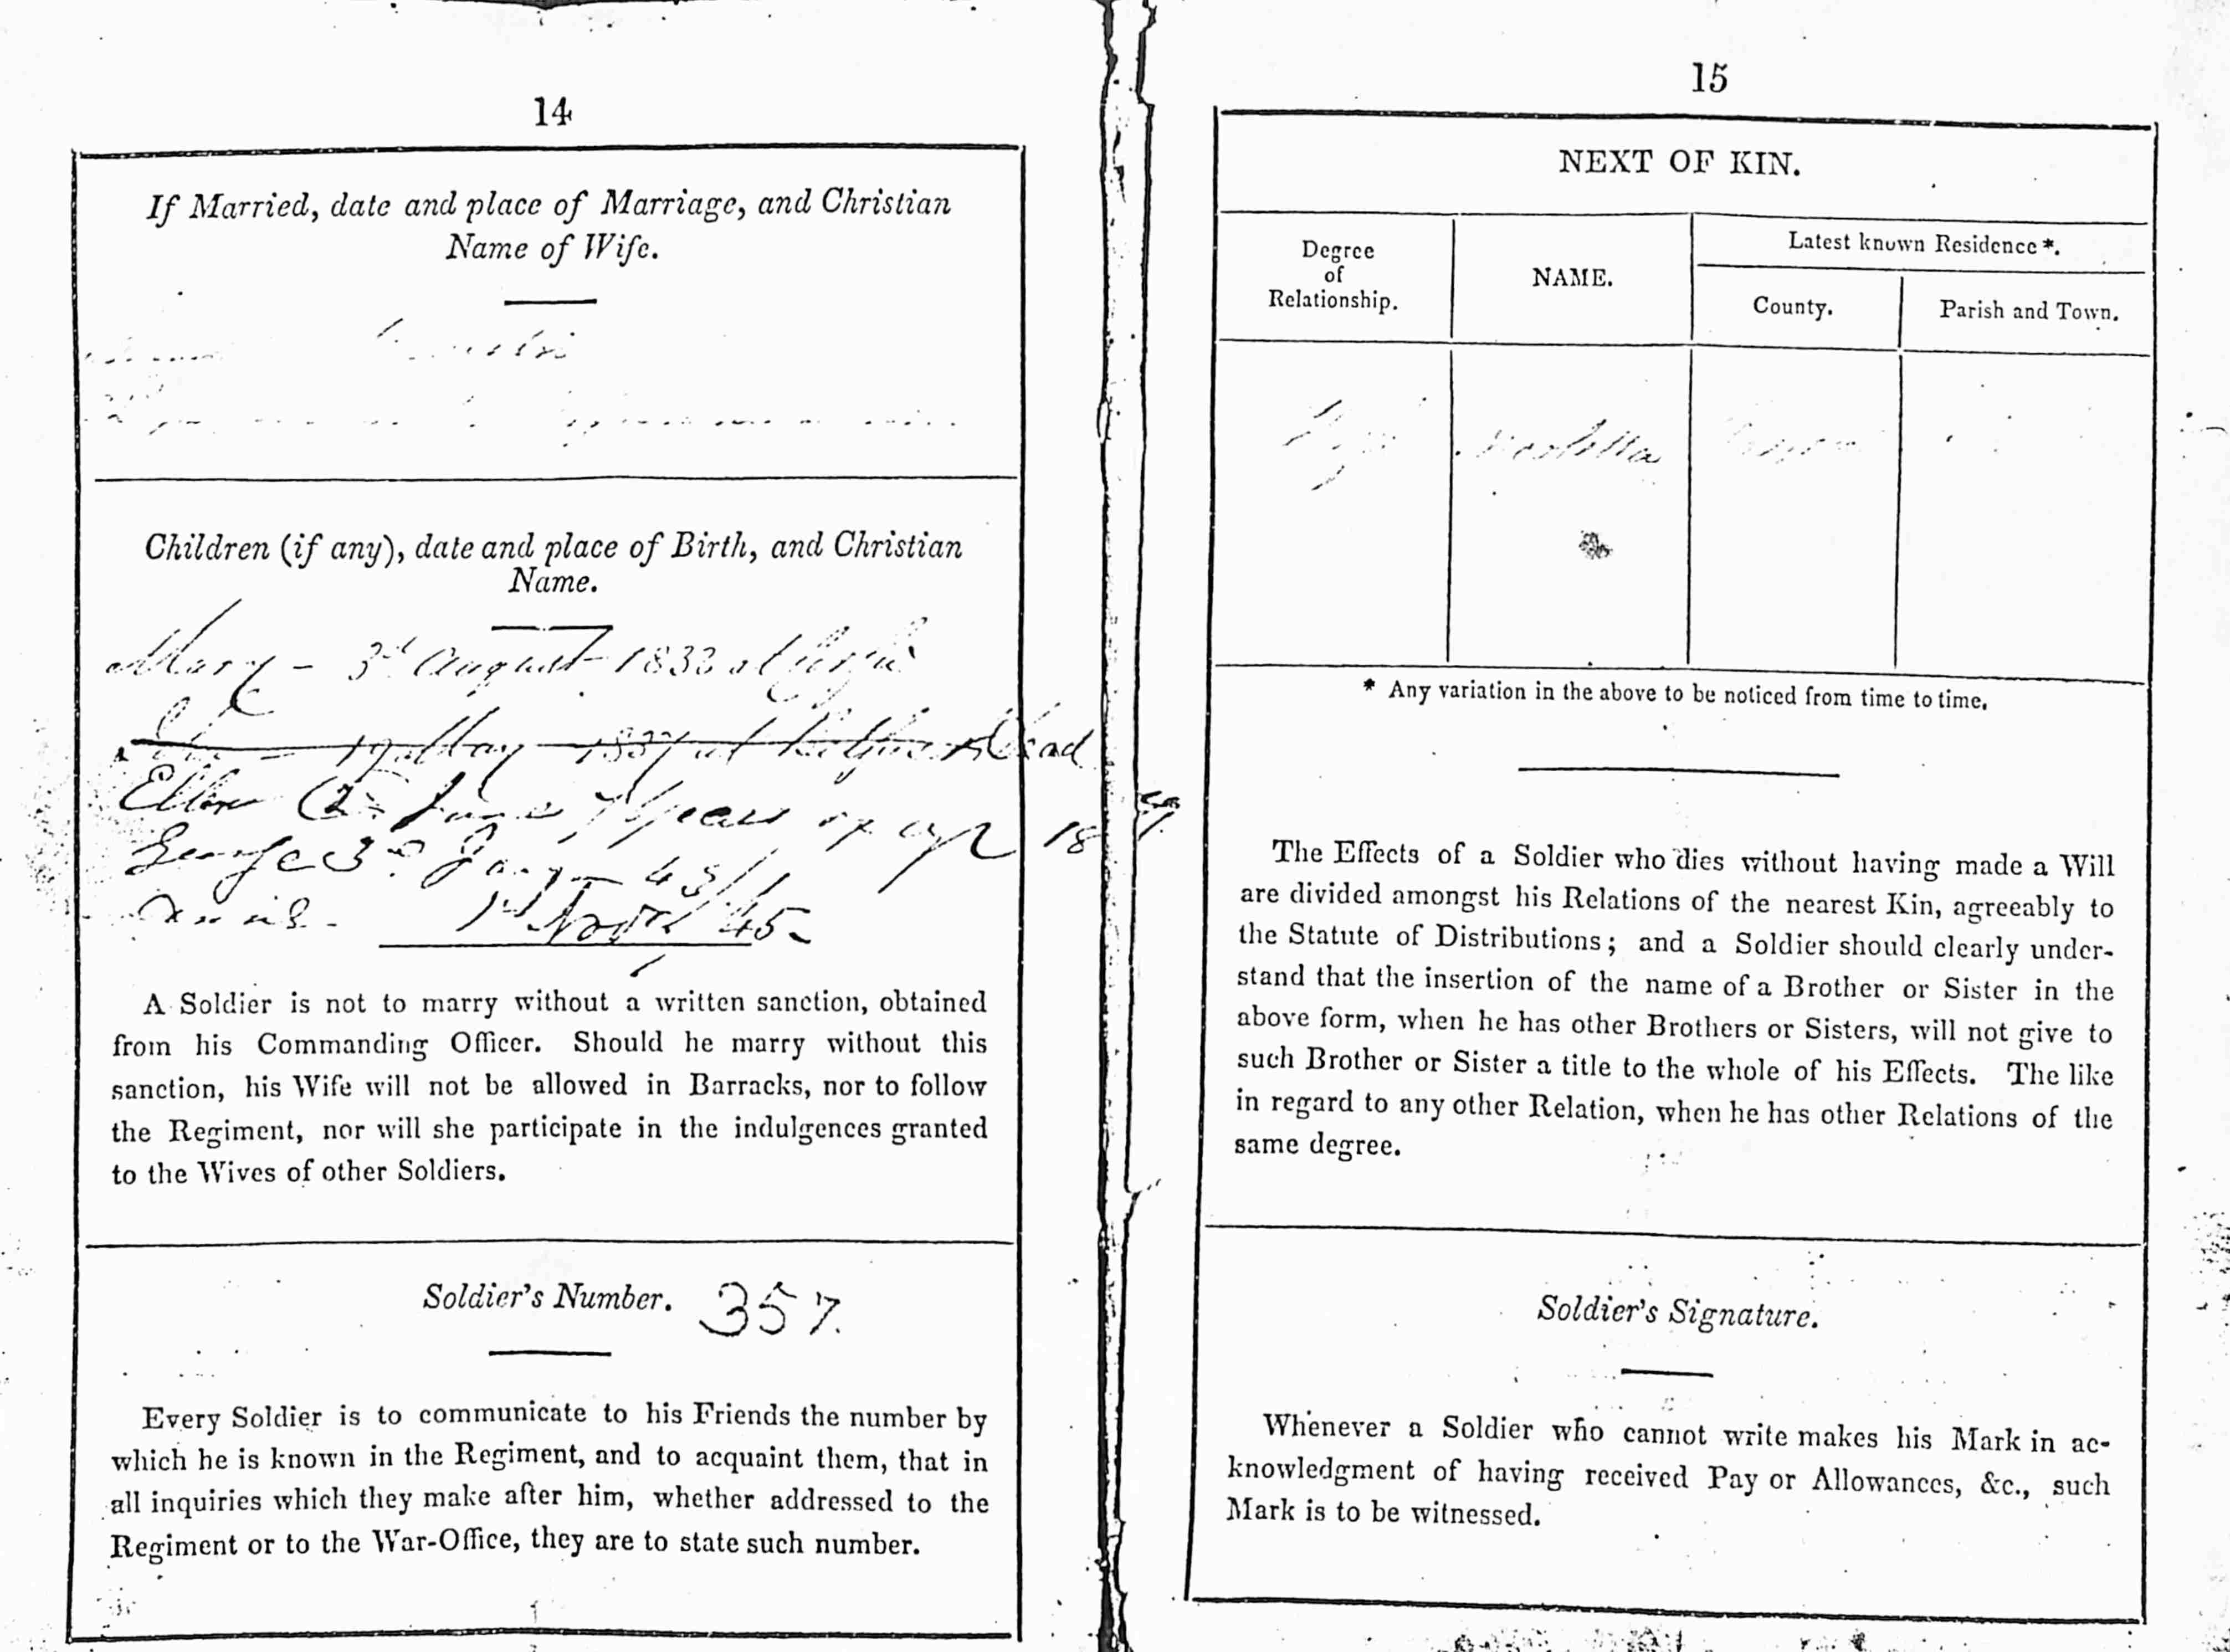 14
If Married, date and place of Marriage, and Christian
Name of Wife.
Children (if any), date and place of Birth, and Christian
Name.
Mary - 3d August 1833 at
19 May 1837 at Dead
Ellen 2d June 7 years of age 18
George 3d Jany 43
1st Novr 45
A Soldier is not to marry without a written sanction, obtained
from his Commanding Officer. Should he marry without this
sanction, his Wife will not be allowed in Barracks, nor to follow
the Regiment, nor will she participate in the indulgences granted
to the Wives of other Soldiers.
Soldier's Number. 357.
Every Soldier is to communicate to his Friends the number by
which he is known in the Regiment, and to acquaint them, that in
all inquiries which they make after him, whether addressed to the
Regiment or to the War-Office, they are to state such number.
15
NEXT OF KIN.
Degree
of
Relationship.
NAME.
Latest known Residence *.
County.
Parish and Town.
* Any variation in the above to be noticed from time to time.
The Effects of a Soldier who dies without having made a Will
are divided amongst his Relations of the nearest Kin, agreeably to
the Statute of Distributions; and a Soldier should clearly under-
stand that the insertion of the name of a Brother or Sister in the
above form, when he has other Brothers or Sisters, will not give to
such Brother or Sister a title to the whole of his Effects. The like
in regard to any other Relation, when he has other Relations of the
same degree.
Soldier's Signature.
Whenever a Soldier who cannot write makes his Mark in ac-
knowledgment of having received Pay or Allowances, &c., such
Mark is to be witnessed.